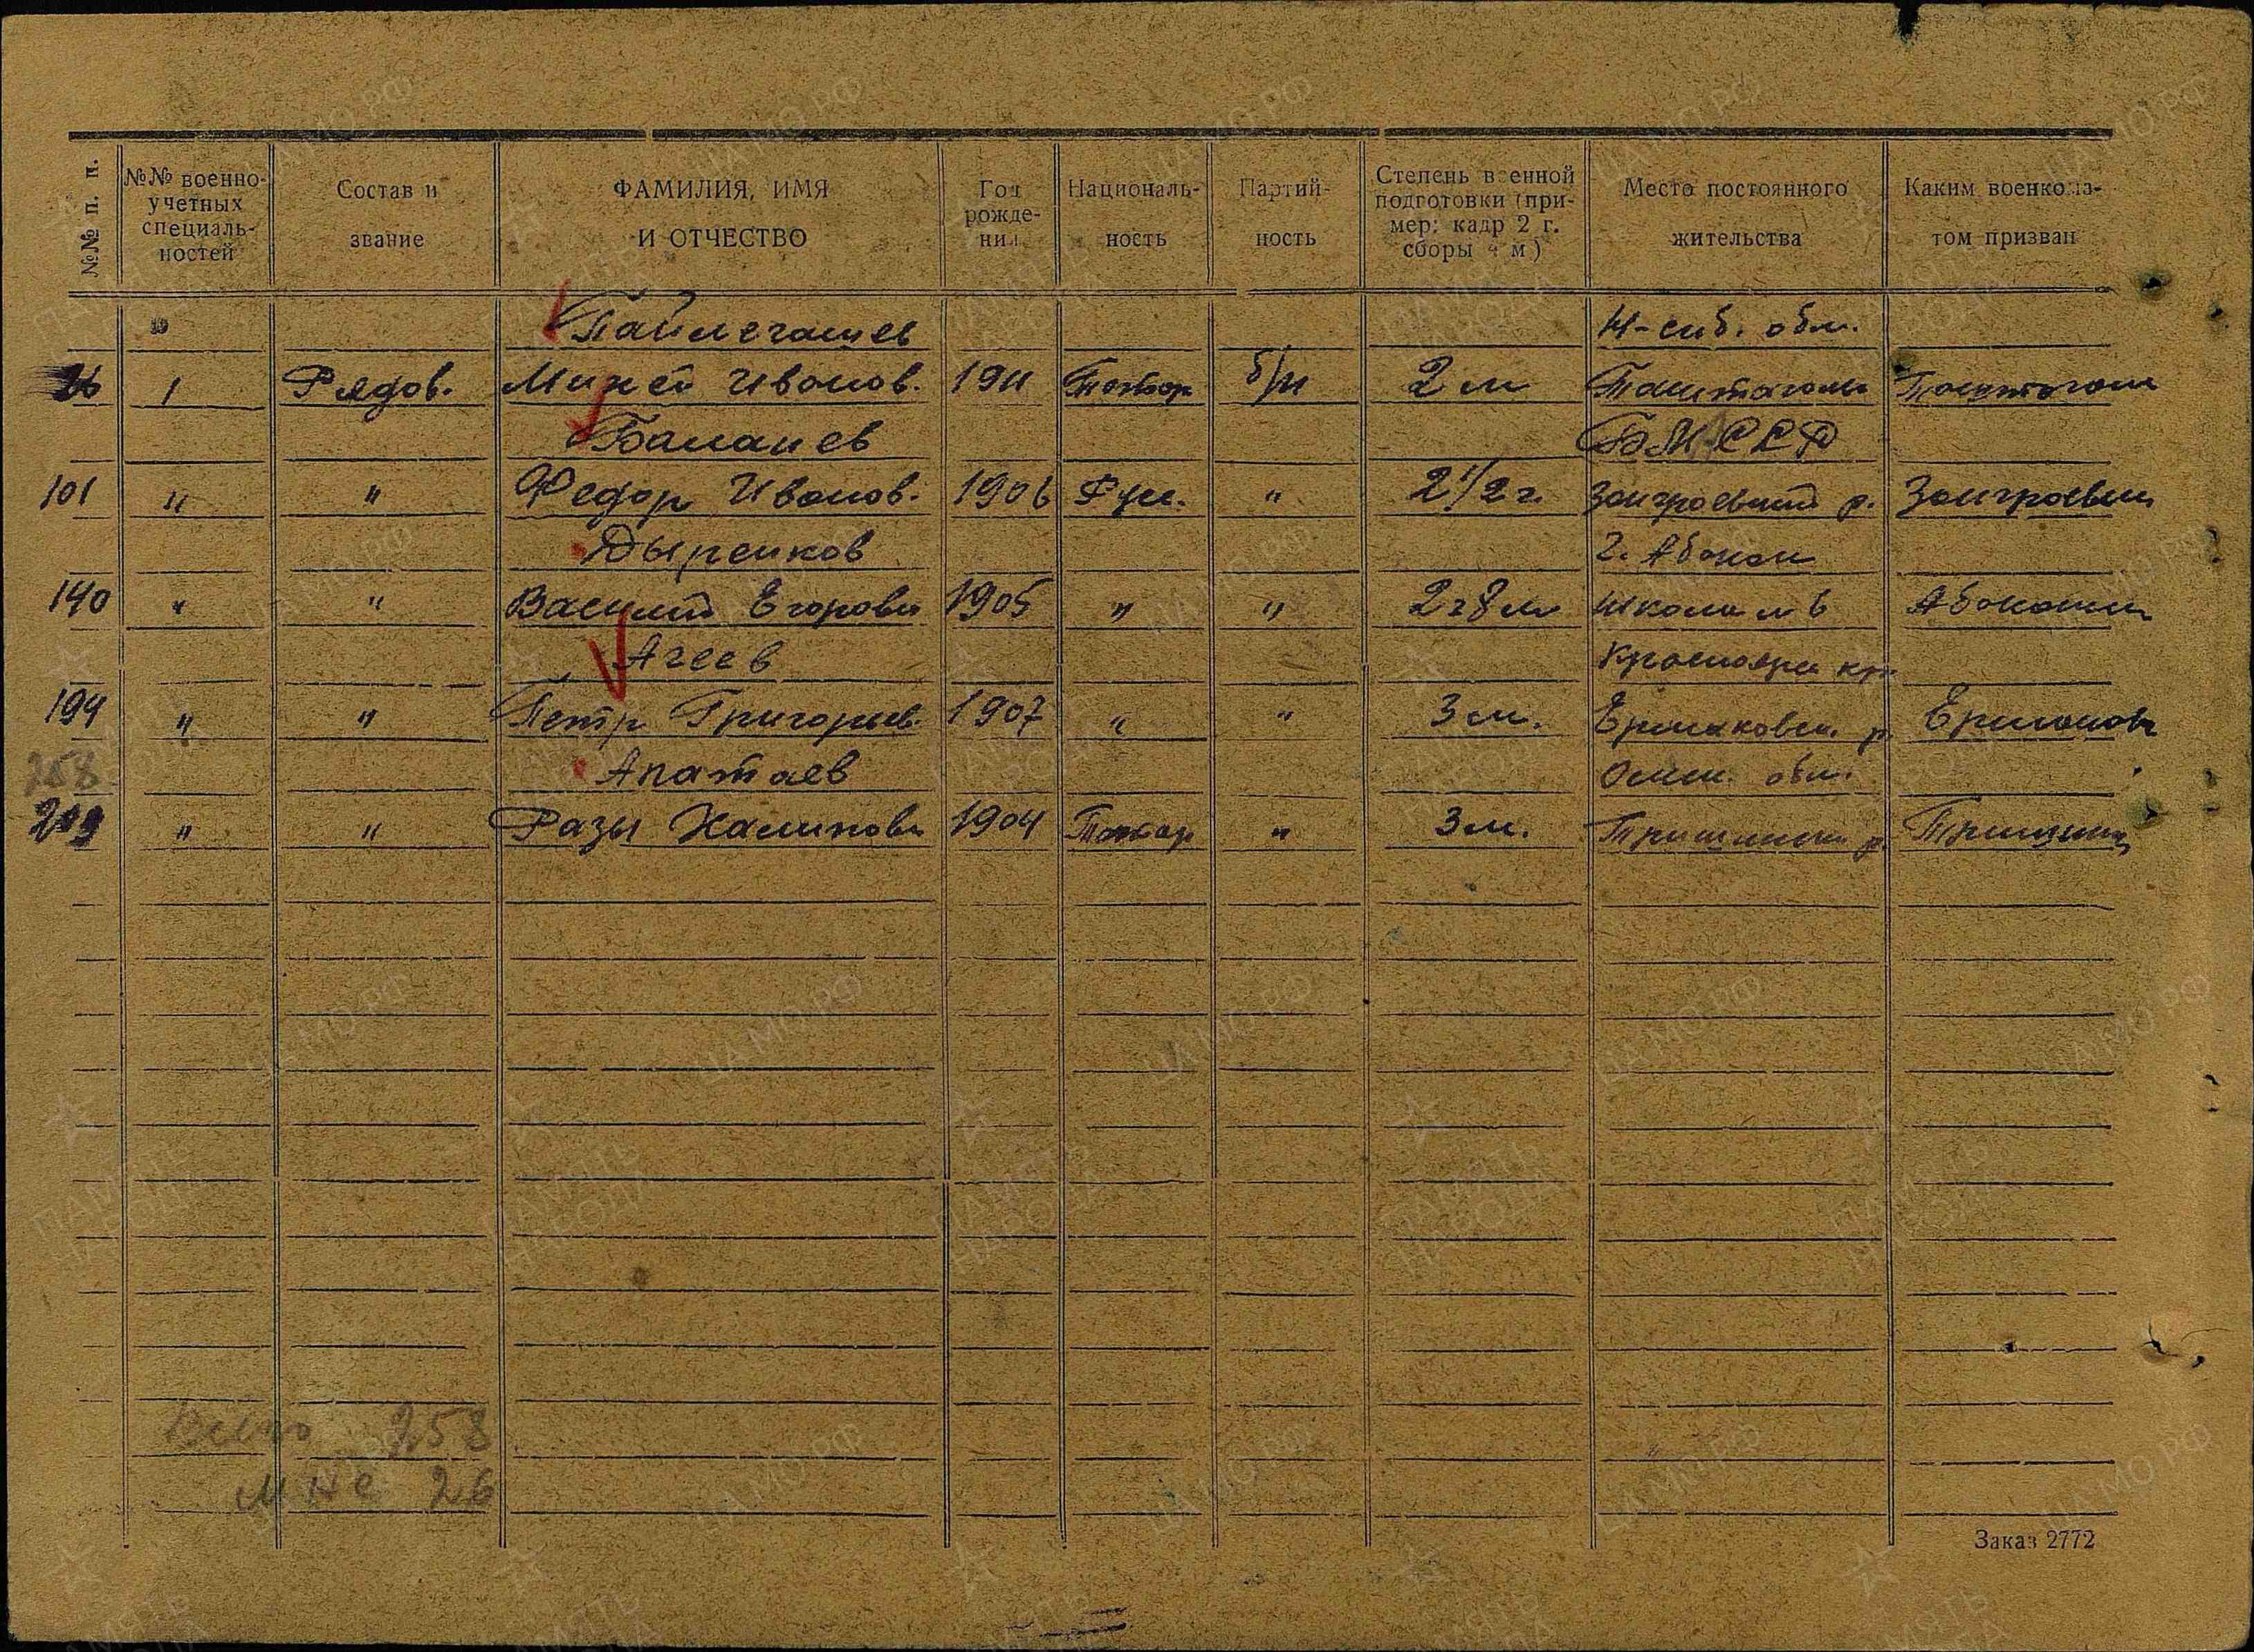 №№ п. п. №№ военно-учетных специальностей Состав и звание ФАМИЛИЯ, ИМЯ И ОТЧЕСТВО Год рождения Националь-ность Партий-ность Степень военной подготовки (при-мер: кадр 2 г. сборы 4 м) Место постоянного жительства Каким военкома-том призван
Пайлегашев Н-сиб. обл.
1 Рядов. Иванов. 1911 Татар б/п 2 м Таштагол
Балашев БМАССР
101 " " Федор Иванов. 1906 Рус. " 2 1/2 г. Заиграевский р. Заиграевск
Дыренков г. Абакан
140 " " Василий Егорови 1905 " " 2 г 8 м школа Абаканск
Агеев Красноярск кр.
194 " " Петр Григорьев. 1907 " " 3 м. Ермаковск. р. Ермаков
258 Апатаев Омск. обл.
209 " " Разы Халикови 1904 Татар " 3 м.
Всего 258
26
Заказ 2772